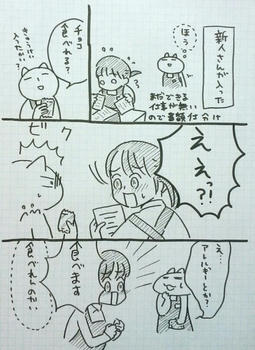 新人さんが入った
ほう。
まだできる
仕事が無い
ので書類仕分け
チョコ
食べれる？
きゅうけい
入ったかい
ええっ?!
ビク
え…
アレルギーとか？
食べます
食べれんのかい